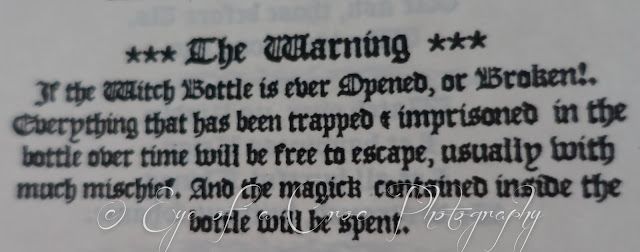 *** The Warning ***
If the Witch Bottle is ever Opened, or Broken!.
Everything that has been trapped & imprisoned in the
bottle over time will be free to escape, usually with
much mischief. And the magick contained inside the
© Eye of a Crow Photography
bottle will be spent.